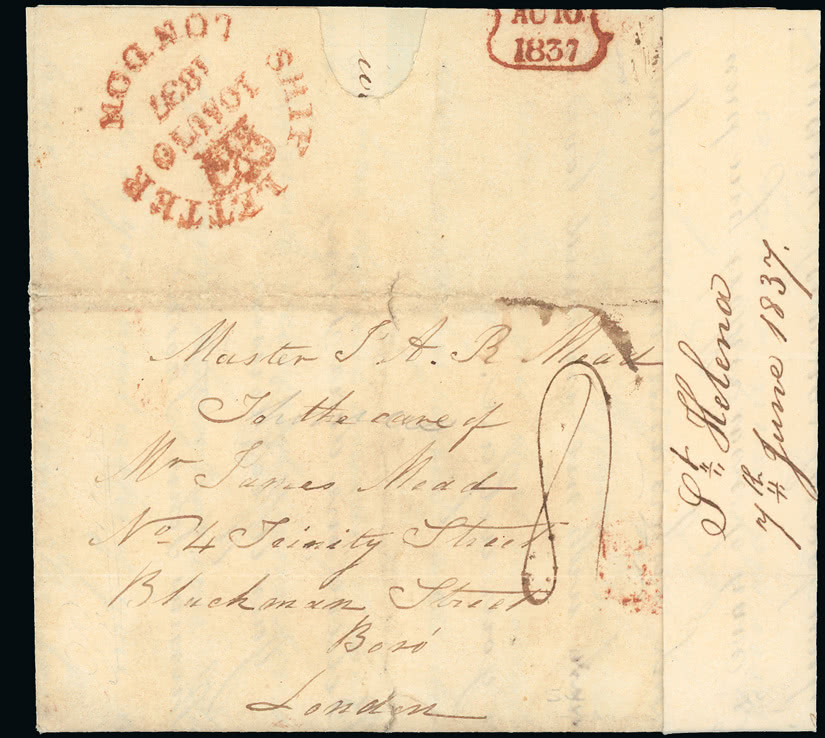 LONDON
SHIP LETTER
10 AU 10
1837
AU 10
1837
Master J A. R Mead
To the care of
Mr James Mead
No 4 Trinity Street
Blackman Street
Boro'
London
8
St Helena
7th June 1837.